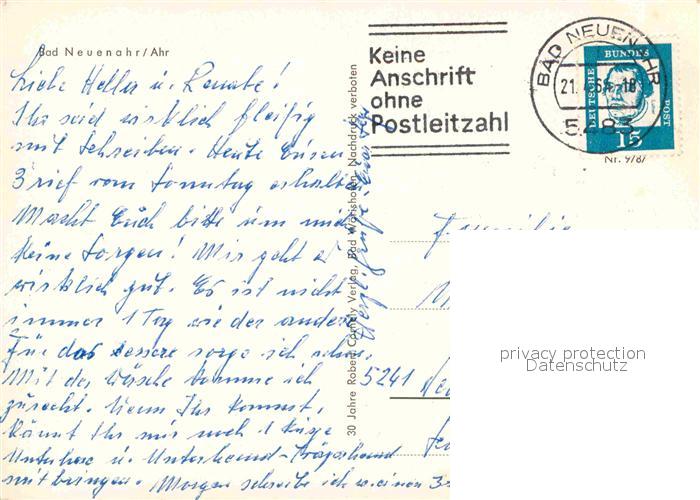 Bad Neuenahr/Ahr
Keine
Anschrift
ohne
Postleitzahl
BAD NEUENAHR
21. -18
5483
DEUTSCHE BUNDES POST
15
Nr. 9/87
Liebe u. Renate!
Ihr seid wirklich fleißig
mit Schreiben. Heute Euren
Brief vom Sonntag erhalten.
Macht Euch bitte um mich
keine Sorgen! Mir geht es
wirklich gut. Es ist nicht
immer 1 Tag wie der andere.
Für das bessere sorge ich schon.
Mit der Wäsche komme ich
zurecht. Wenn Ihr kommt,
könnt Ihr mir noch 1
Unterhose u. Unterhemd-
mitbringen. Morgen schreibe ich w. einen
30 Jahre Robert Comély Verlag, Bad Wörishofen, Nachdruck verboten
Familie
5241
privacy protection
Datenschutz